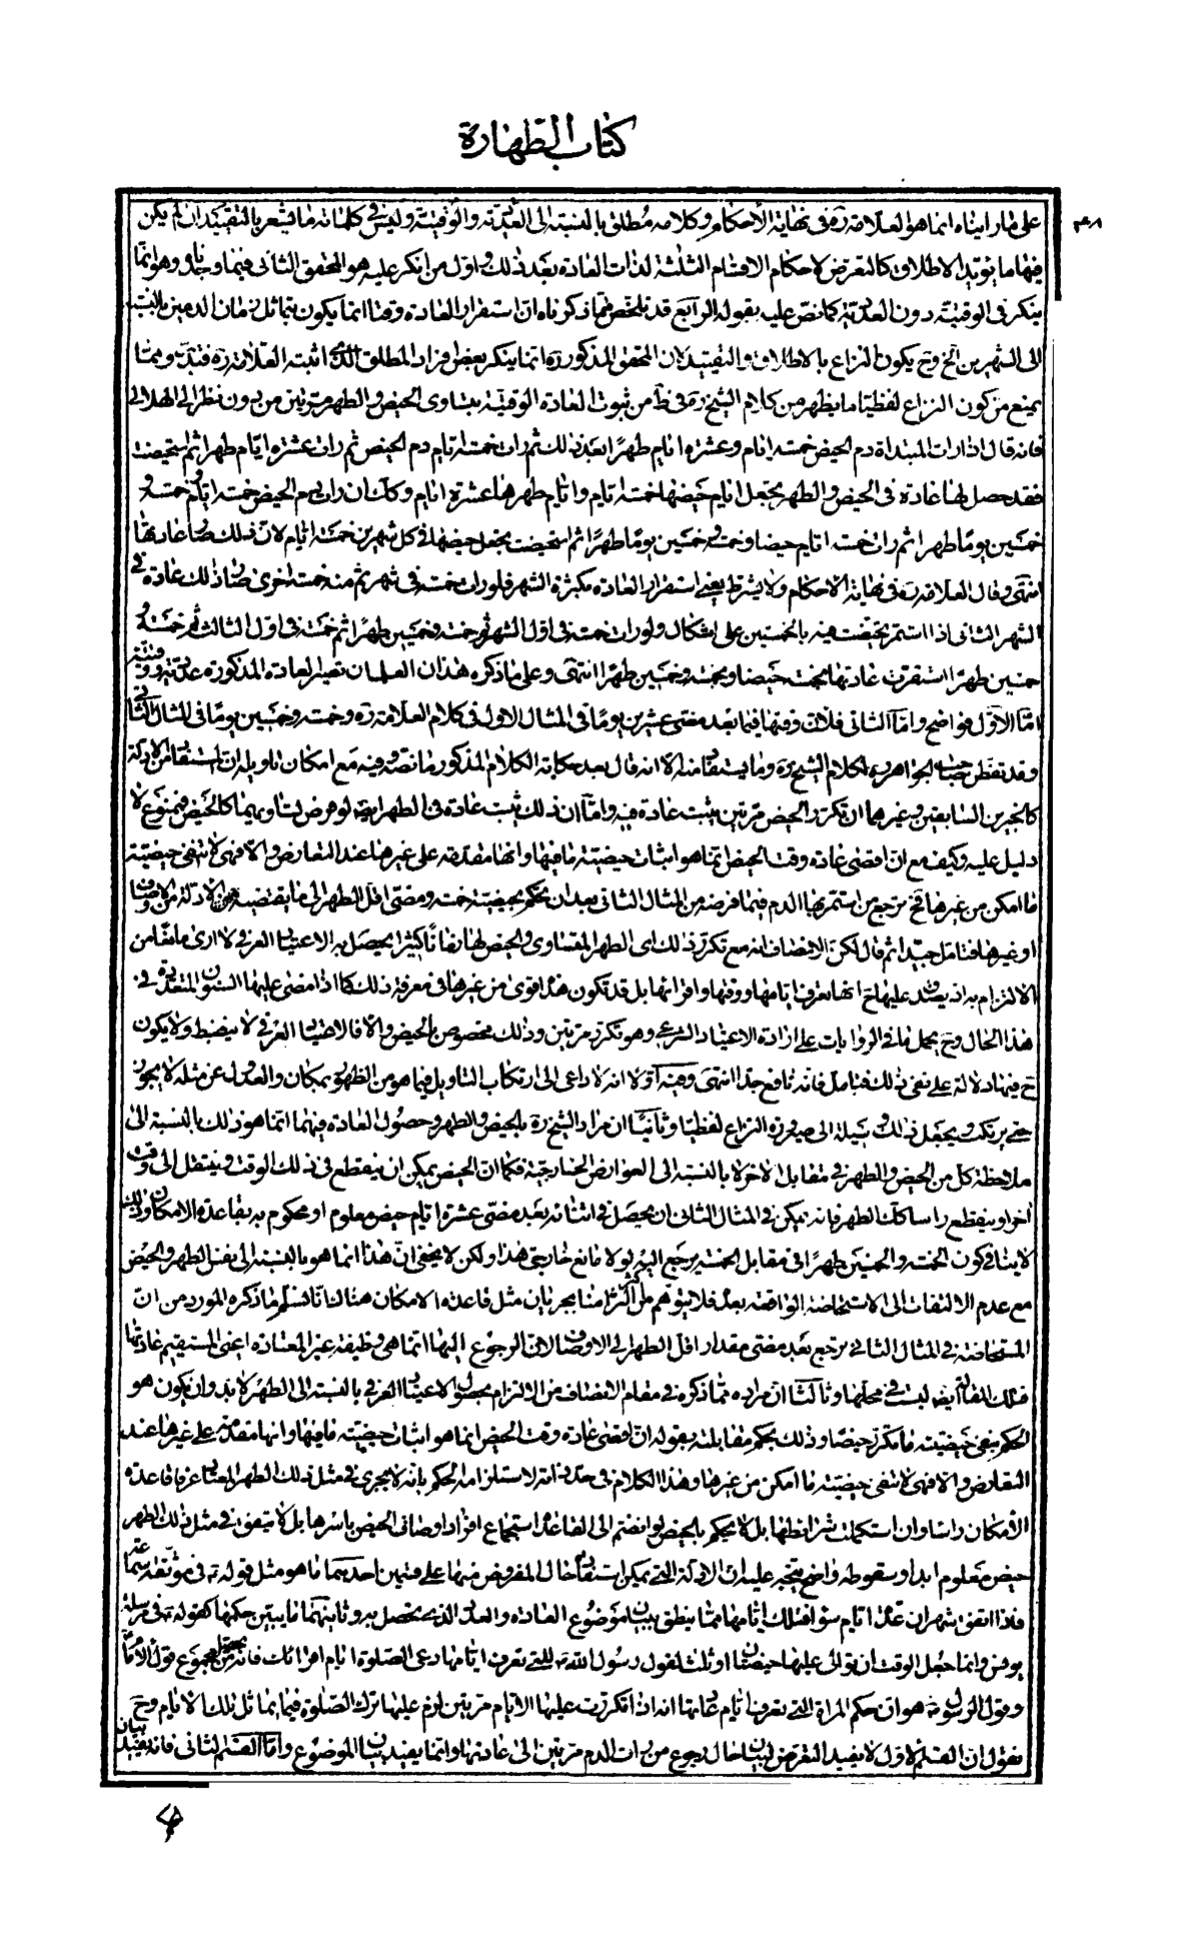 كتاب الطهارة
٣٠٨
على ما رايناه انما هو العلامة ره فى نهاية الأحكام وكلامه مطلق بالنسبة الى العددية والوقتية وليس فى كلماته ما يشعر بالتقييد ان لم يكن
فيها ما يؤيد الاطلاق كالتعرض لاحكام الاقسام الثلثة لذات العادة بعد ذلك واول من انكر عليه هو المحقق الثانى فيما وجدناه وهو انما
ينكر فى الوقتية دون العددية كما نص عليه بقوله الرابع قد تلخص مما ذكرناه ان استقرار العادة وقتا انما يكون بتماثل زمان الدمين بالنسبة
الى الشهرين الخ وح يكون النزاع بالاطلاق والتقييد لان المحقق المذكور ره انما ينكر بعض افراد المطلق الذى اثبته العلامة ره فتدبر ومما
يمنع من كون النزاع لفظيا ما يظهر من كلام الشيخ ره فى ط من ثبوت العادة الوقتية بتساوى الحيض والطهر مرتين من دون نظر الى الهلالى
فانه قال اذا رات المبتداة دم الحيض خمسة ايام وعشرة ايام طهرا بعد ذلك ثم رات خمسة ايام دم الحيض ثم رات عشرة ايام طهرا ثم استحيضت
فقد حصل لها عادة فى الحيض والطهر يجعل ايام حيضها خمسة ايام وايام طهرها عشرة ايام وكك ان رات دم الحيض خمسة ايام وخمسة و
خمسين يوما طهرا ثم رات خمسة ايام حيضا وخمسة وخمسين يوما طهرا ثم استحيضت يجعل حيضها فى كل شهرين خمسة ايام لان ذلك صار عادتها
انتهى وقال العلامة ره فى نهاية الاحكام ولا يشترط يعنى استقرار العادة بكثرة الشهر فلو رات خمسة فى شهر ثم منه خمسة اخرى صار ذلك عادة فى
الشهر الثانى اذا استمر تحيضت فيه بالخمستين على اشكال ولو رات خمسة فى اول الشهر ثم خمسة وخمسين طهرا ثم خمسة فى اول الثالث ثم خمسة و
خمسين طهرا استقرت عادتها بخمسة حيضا وبخمسة وخمسين طهرا انتهى وعلى ما ذكره هذان العلمان تصير العادة المذكورة عددية ووقتية
امّا الأوّل فواضح وامّا الثانى فلان وقتها فيما بعد مضى عشرين يوما فى المثال الاول فى كلام العلامة ره وخمسة وخمسين يوما فى المثال الثانى
وقد تفطن صاحب الجواهر ره لكلام الشيخ ره وما يستفاد منه الا انه قال بعد حكاية الكلام المذكور ما نصه وفيه مع امكان تاويله ان المستفاد من الادلة
كالخبرين السابقين وغيرهما ان تكرر الحيض مرتين يثبت عادة فيه وامّا ان ذلك يثبت عادة فى الطهر ايضا لو فرض تساويهما كالحيض فممنوع لا
دليل عليه وكيف مع ان اقصى عادة وقت الحيض انما هو اثبات حيضية ما فيها وانها مقدمة على غيرها عند التعارض والا فهى لا تنفى حيضية
ما امكن من غيرها فح ترجع من استمر بها الدم فيما فرضه من المثال الثانى بعد ان يحكم بحيضية خمسة ومضى اقل الطهر الى ما يقتضيه من الادلة من الاوصاف
او غيرها فتامل جيدا ثم قال لكن الانصاف انه مع تكرر ذلك اى الطهر المتساوى والحيض لها زمانا كثيرا يحصل به الاعتياد العرفى لا ارى مانعا من
الالتزام به اذ يصدق عليها ح انها تعرف ايامها ووقتها واقرائها بل قد تكون هذه اقوى من غيرها فى معرفة ذلك كما اذا مضى عليها السنون المتعددة فى
هذا الحال وح يحمل ما فى الروايات على ارادة الاعتياد الشرعى وهو تكرره مرتين وذلك مخصوص بالحيض والا فالاعتياد العرفى لا ينضبط ولا يكون
ح فيها دلالة على نفى ذلك فتامل فانه نافع جدا انتهى وفيه اولا انه لا داعى الى ارتكاب التاويل فيما هو من الظهور بمكان والعدول عن مثله لا يجوز
حتى يرتكب ويجعل ذلك وسيلة الى صيرورة النزاع لفظيا وثانيا ان مراد الشيخ ره بالحيض والطهر وحصول العادة فيهما انما هو ذلك بالنسبة الى
ملاحظة كل من الحيض والطهر فى مقابل الاخر لا بالنسبة الى العوارض الخارجية فكما ان الحيض يمكن ان ينقطع فى ذلك الوقت وينتقل الى وقت
اخر او ينقطع راسا كك الطهر فانه يمكن فى المثال الثانى ان يحصل فى اثنائه بعد مضى عشرة ايام حيض معلوم او محكوم به بقاعدة الامكان وذلك
لا ينافى كون الخمسة والخمسين طهرا فى مقابل الخمسة يرجع اليه لولا مانع خارجى هذا ولكن لا يخفى ان هذا انما هو بالنسبة الى نفس الطهر والحيض
مع عدم الالتفات الى الاستحاضة الواقعة بعد فلا يتوهم من التزامنا بجريان مثل قاعدة الامكان هناك انا نسلم ما ذكره المورد من ان
المستحاضة فى المثال الثانى ترجع بعد مضى مقدار اقل الطهر الى الاوصاف لان الرجوع اليها انما هى وظيفة غير المعتادة اعنى المستقيم عادتها
فتلك المقالة ايضا ليست فى محلها وثالثا ان مراده مما ذكره فى مقام الانصاف من الالتزام بحصول الاعتياد العرفى بالنسبة الى الطهر لا بد وان يكون هو
الحكم بنفى حيضيته ما تكرر حيضا وذلك بحكم مقابلته بقوله ان اقصى عادة وقت الحيض انما هو اثبات حيضية ما فيها وانها مقدمة على غيرها عند
التعارض والا فهى لا تنفى حيضية ما امكن من غيرها وهذا الكلام فى حد ذاته لاستلزامه الحكم بانه لا يجرى فى مثل ذلك الطهر المعتاد عرفا قاعدة
الأمكان راسا وان استكملت شرائطها بل لا يحكم بالحيض لو انضم الى القاعدة استجماع افراد اوصافى الحيض باسرها بل لا يتفق فى مثل ذلك الطهر
حيض معلوم ابدا وسقوطه واضح يتجه عليه ان الادلة التى يمكن استفادة حال المفروض منها على قسمين احدهما ما هو مثل قوله ع فى موثقة سماعة
فاذا اتفق شهران عدة ايام سواء فتلك ايامها مما ينطق ببيان موضوع العادة والعدد الذى تحصل به وثانيهما ما يبين حكمها كقوله ع فى مرسلة
يونس وانما جعل الوقت ان توالى عليها حيضتان او ثلث لقول رسول الله ص للتى تعرف ايامها دعى الصلوة ايام اقرائك فانه يحصل من مجموع قول الامام
وقول الرسول ص هو ان حكم المراة التى تعرف ايام عادتها انه اذا تكررت عليها الايام مرتين لزم عليها ترك الصلوة فيما يماثل تلك الايام وح
نقول ان القسم الاول لا يفيد التعرض لبيان حال رجوع من رات الدم مرتين الى عادتها وانما يفيد بيان الموضوع وامّا القسم الثانى فانه يفيد بيان